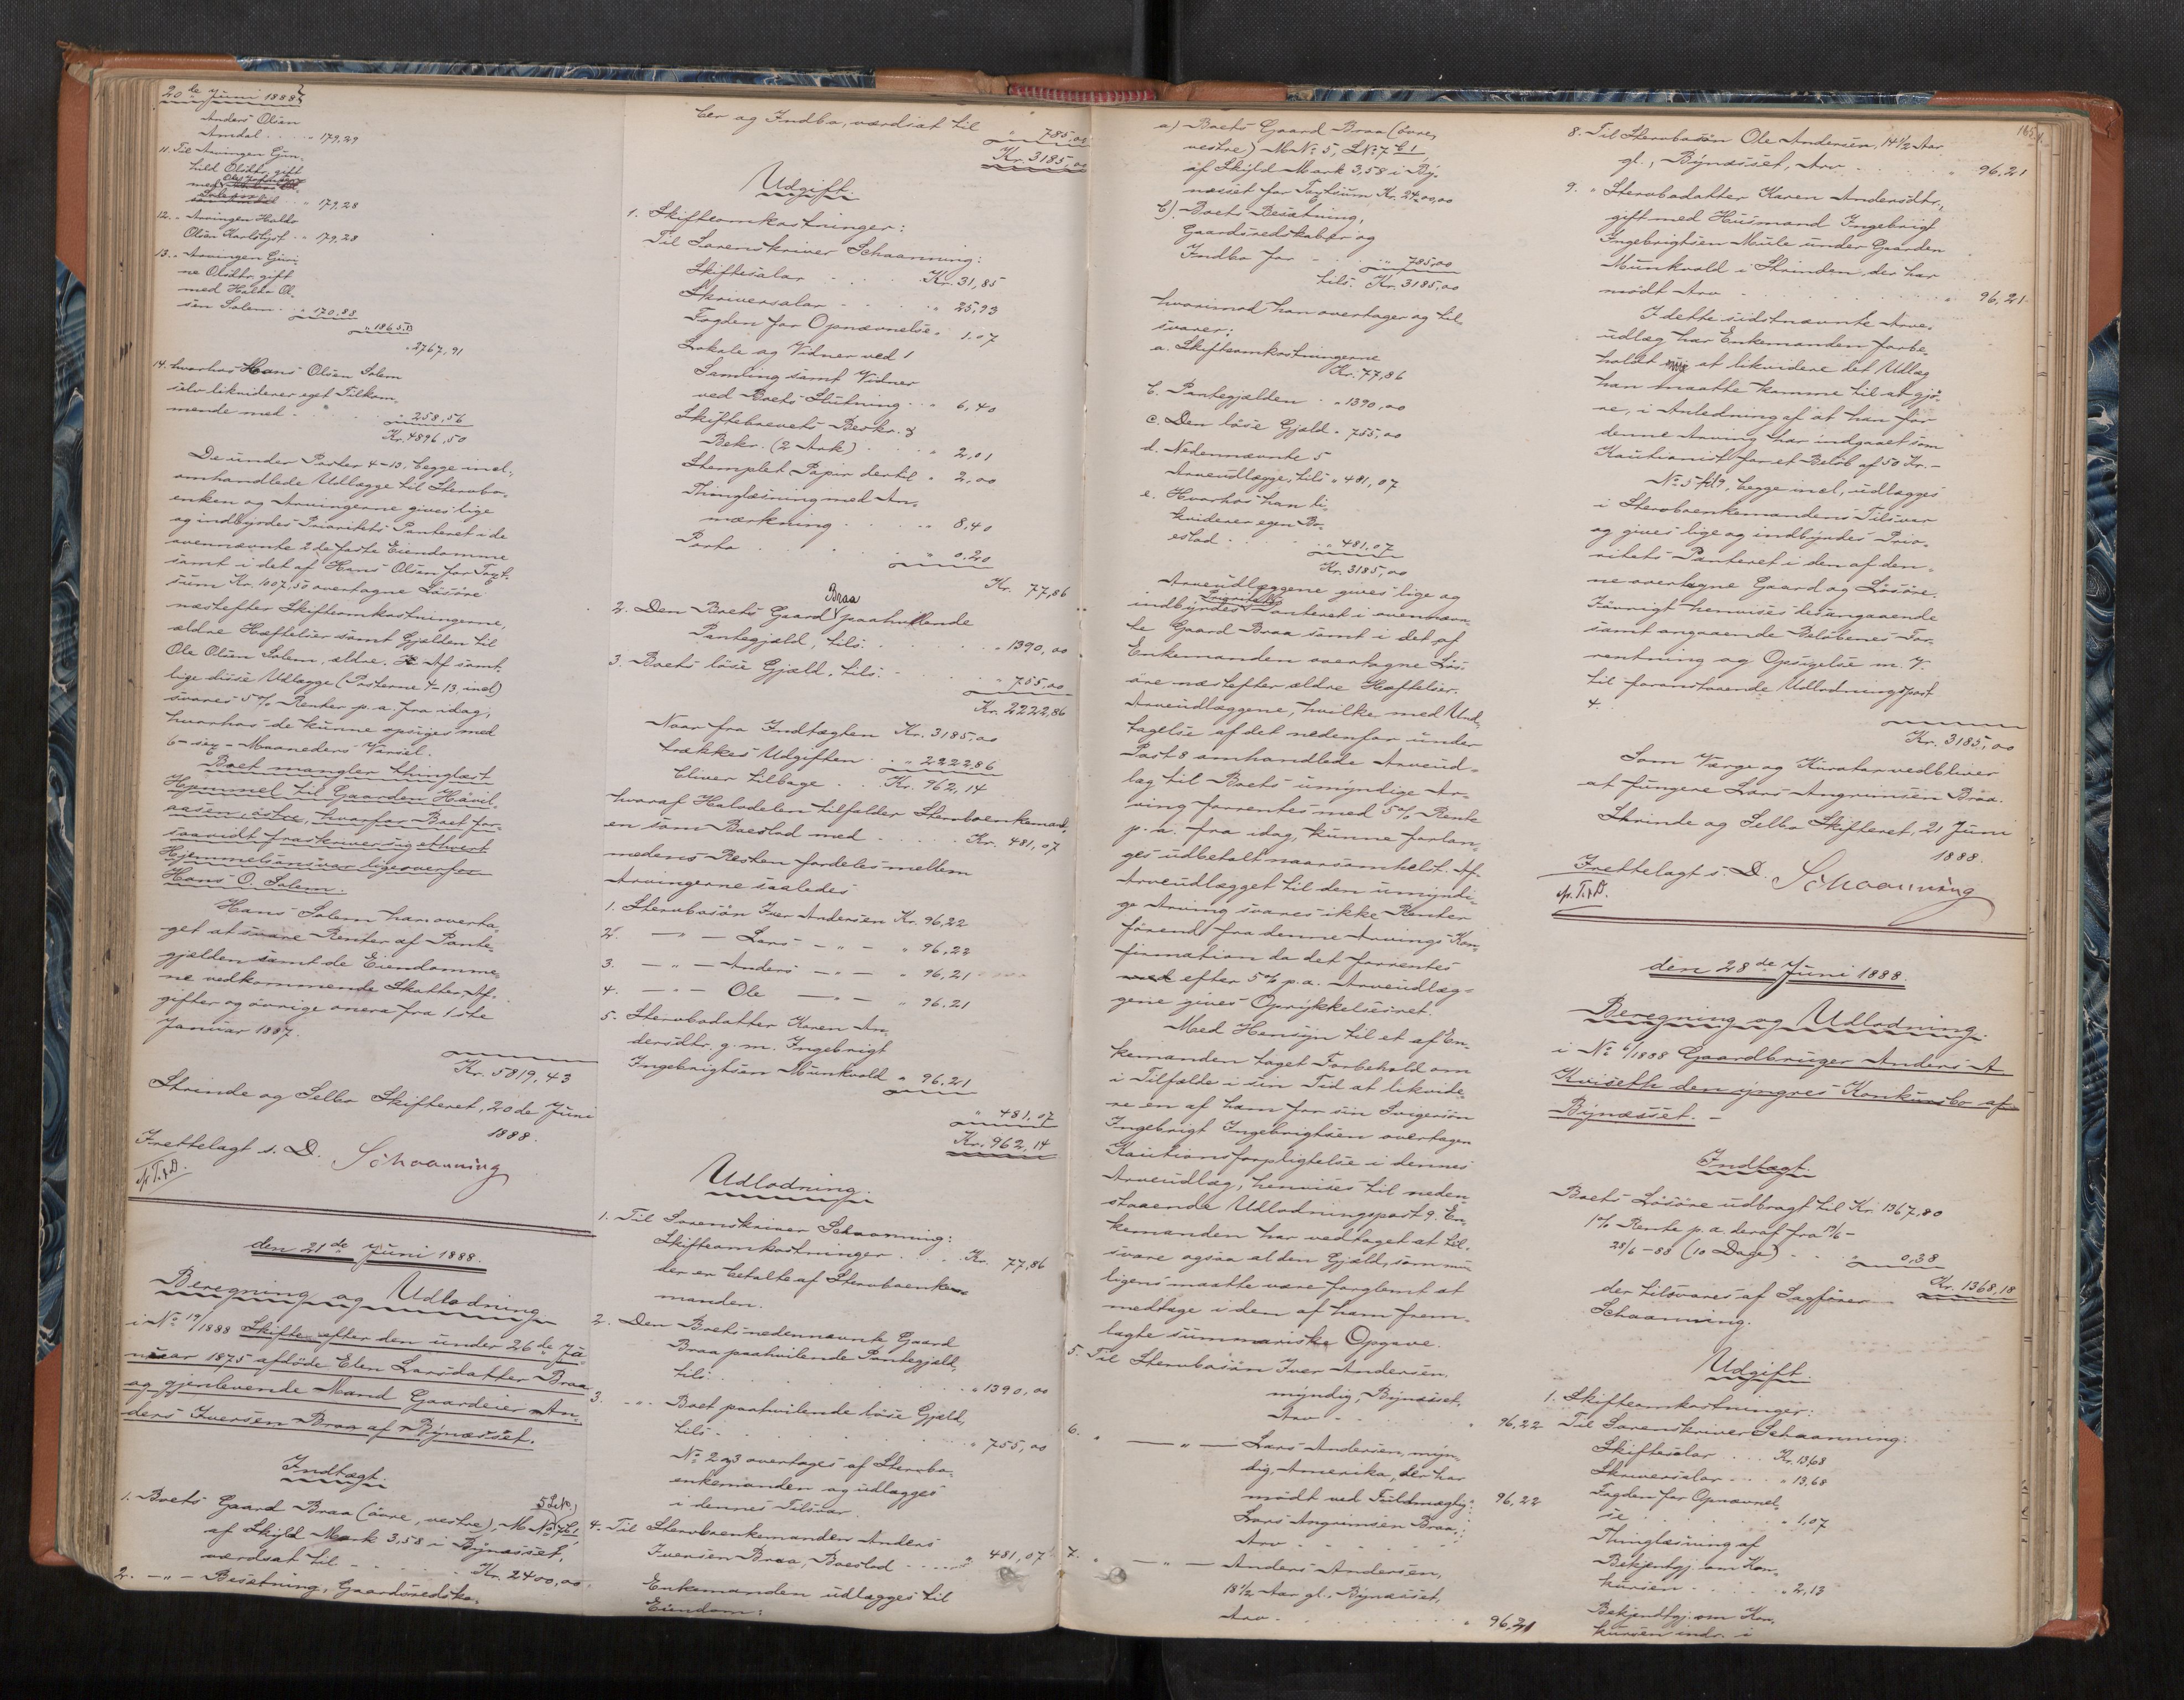 20de Juni 1888
Anders Olsen
Amdal . . . . „ 179,29
11. Til Arvingen Gun-
hild Olsdtr. gift
med
„ 179,28
12. „ Arvingen Haldo
Olsen Karlslyst . . „ 179,28
13. „ Arvingen Guru-
ne Olsdtr. gift
med Haldo Ol-
sen Solem . . „ 170,88
„ 1865,
„ 2767,91
14. hvorhos Hans Olsen Solem
selv likviderer eget Tilkom-
mende med . . . „ 258,56
Kr. 4896,50
De under Poster 4-13, begge incl.,
omhandlede Udlægge til Stervbo-
enken og Arvingerne gives lige
og indbyrdes Prioritets Panteret i de
ovennævnte 2de faste Eiendomme
samt i det af Hans Olsen for Taxt-
sum Kr. 1007,50 overtagne Løsøre
næstefter Skifteomkostningerne,
ældre Hæftelser samt Gjælden til
Ole Olsen Solem, ældre. Af samt-
lige disse Udlægge (Posterne 4-13, incl)
svares 5% Renter p. a. fra idag,
hvorhos de kunne opsiges med
6 - sex - Maaneders Varsel.
Boet mangler thinglæst
Hjemmel til Gaarden Håvil-
aasen, østre, hvorfor Boet for-
saavidt fraskriver sig ethvert
Hjemmelsansvar ligeoverfor
Hans O. Solem.
Hans Solem har overta-
get at svare Renter af Pante-
gjælden samt de Eiendomme-
ne vedkommende Skatter, Af-
gifter og øvrige onera fra 1ste
Januar 1887.
Kr. 5819,43
Strinde og Selbo Skifteret, 20de Juni
1888.
Frettelagt s. D. Schaanning
p. T. & D.
den 21de Juni 1888.
Beregning og Udlodning
i No 19/1888 Skifte efter den under 26de Ja-
nuar 1875 afdøde Elen Larsdatter Braa
og gjenlevende Mand Gaardeier An-
ders Iversen Braa af Bynæsset.
Indtægt.
1. Boets Gaard Braa (øvre, vestre), M No 5, L No 7 b 1
af Skyld Mark 3,58 i Bynæsset,
værdsat til - - - - Kr. 2400,00.
2. — „ — Besætning, Gaardsredska-
ber og Indbo, værdsat til „ 785,00
Kr. 3185,00
Udgift.
1. Skifteomkostninger:
Til Sorenskriver Schaanning:
Skiftesalar . . . . Kr. 31,85
Skriversalar . . . . „ 25,93
Fogden for Opnævnelse „ 1.07
Lokale og Vidner ved 1
Samling samt Vidner
ved Boets Slutning . . „ 6,40
Skiftebrevets Beskr. &
Bekr. (2 Ark) . . . . „ 2,01
Stemplet Papir dertil „ 2,00
Thinglæsning med An-
mærkning . . . . „ 8,40
Porto . . . . . „ 0.20
Kr. 77,86
2. Den Boets Gaard Braa paahvilende
Pantegjæld, tils. . . . . . . „ 1390,00
3. Boets løse Gjæld, tils: . . . . „ 755,00
Kr. 2222,86
Naar fra Indtægten Kr. 3185,00
trækkes Udgiften . . „ 2222,86
bliver tilbage . . Kr. 962,14
hvoraf Halvdelen tilfalder Stervboenkemand-
en som Boeslod med . . . . Kr. 481,07
medens Resten fordeles mellem
Arvingerne saaledes
1. Stervbosøn Iver Andersen Kr. 96,22
2. — „ — Lars — „ — „ 96,22
3. — „ — Anders — „ — „ 96,21
4. — „ — Ole — „ — „ 96.21
5. Stervbodatter Karen An-
dersdtr. g. m. Ingebrigt
Ingebrigtsen Munkvold „ 96,21
„ 481,07
Kr. 962,14
Udlodning.
1. Til Sorenskriver Schaanning:
Skifteomkostninger . . Kr. 77,86
der er betalte af Stervboenke-
manden.
2. Den Boets nedennævnte Gaard
Braa paahvilende Pantegjæld,
tils: . . . . . . . . „ 1390,00
3. „ „ Boet paahvilende løse Gjæld,
tils - . . . . . . . „ 755,00
No 2 og 3 overtages af Stervbo-
enkemanden og udlægges
i dennes Tilsvar.
4. Til Stervboenkemanden Anders
Iversen Braa, Boeslod . . . . „ 481,07
Enkemanden udlægges til
Eiendom:
a) Boets Gaard Braa (øvre,
vestre) M No 5, L No 7 b 1
af Skyld Mark 3,58 i By-
næsset for Taxtsum Kr. 2400,00
b) Boets Besætning,
Gaardsredskaber og
Indbo for - . . . „ 785,00
tils: Kr. 3185,00
hvorimod han overtager og til-
svarer:
a. Skifteomkostningerne
Kr. 77,86
b. Pantegjælden . „ 1390,00
c. Den løse Gjæld „ 755,00
d. Nedennævnte 5
Arveudlægge, tils „ 481,07
e. Hvorhos han li-
kviderer egen Bo-
eslod . . . . „ 481,07
Kr. 3185,00
Arveudlæggene gives lige og
indbyrdes Prioritets Panteret i ovennævn-
te Gaard Braa samt i det af
Enkemanden overtagne Løs-
øre næstefter ældre Hæftelser.
Arveudlæggene, hvilke med Und-
tagelse af det nedenfor under
Post 8 omhandlede Arveud-
læg til Boets umyndige Ar-
ving forrentes med 5% Rente
p. a. fra idag, kunne forlan-
ges udbetalt naarsomhelst. Af
Arveudlægget til den umyndi-
ge Arving svares ikke Renter
førend fra denne Arvings Kon-
firmation da det forrentes
efter 5% p. a. Arveudlæg-
gene gives Oprykkelsesret.
Med Hensyn til et af En-
kemanden taget Forbehold om
i Tilfælde i sin Tid at likvide-
re en af ham for sin Svigersøn
Ingebrigt Ingebrigtsen overtagen
Kautionsforpligtelse i dennes
Arveudlæg, henvises til neden-
staaende Udlodningspost 9. En-
kemanden har vedtaget at til-
svare ogsaa al den Gjæld, som mu-
ligens maatte være forglemt at
medtage i den af ham frem-
lagte summariske Opgave.
5. Til Stervbosøn Iver Andersen,
myndig, Bynæsset,
Arv - - . . . . „ 96,22
6. „ — „ — Lars Andersen, myn-
dig, Amerika, der har
mødt ved Fuldmægtig: „ 96,22
Lars Angrimsen Braa:
Arv - - - - -
7. „ — „ — Anders Andersen,
18 1/2 Aar gl., Bynæsset,
Arv - . . . . . . „ 96,21
165.
8. Til Stervbosøn Ole Andersen, 14 1/2 Aar
gl., Bynæsset, Arv . . . . . „ 96,21
9. „ Stervbodatter Karen Andersdtr.,
gift med Husmand Ingebrigt
Ingebrigtsen Mule under Gaarden
Munkvold i Strinden, der har
mødt Arv - . . . . . . „ 96,21
I dette sidstnævnte Arve-
udlæg har Enkemanden forbe-
holdt sig at likvidere det Udlæg
han maatte komme til at gjø-
re, i Anledning af at han for
denne Arving har indgaaet som
Kautionist for et Beløb af 50 Kr. -
No 5 til 9, begge incl., udlægges
i Stervboenkemandens Tilsvar
og gives lige og indbyrdes Prio-
ritets Panteret i den af den-
ne overtagne Gaard og Løsøre.
Iøvrigt henvises desangaaende
samt angaaende Beløbenes For-
rentning og Opsigelse m. V.
til foranstaaende Udlodningspost
4.
Kr. 3185,00
Som Værge og Kurator vedbliver
at fungere Lars Angrimsen Braa.
Strinde og Selbo Skifteret, 21 Juni
1888.
Frettelagt s. D. Schaanning
p. T. & D.
den 28de Juni 1888.
Beregning og Udlodning
i No 6/1888 Gaardbruger Anders A
Kviseth den yngres Konkursbo af
Bynæsset. -
Indtægt.
Boets Løsøre udbragt til Kr. 1367,80
1% Rente p. a. deraf fra 18/6 -
28/6 - 88 (10 Dage) - . . „ 0,38
Kr. 1368,18
der tilsvares af Sagfører
Schaanning.
Udgift.
1. Skifteomkostninger:
Til Sorenskriver Schaanning:
Skiftesalar . . . Kr. 13,68
Skriversalar . . . „ 13,68
Fogden for Opnævnel-
se . . . . . . „ 1,07
Thinglæsning af
Bekjentgj. om Kon-
kursen . . . . . „ 2,13
Bekjendtgj. om Kon-
kursen indr. i